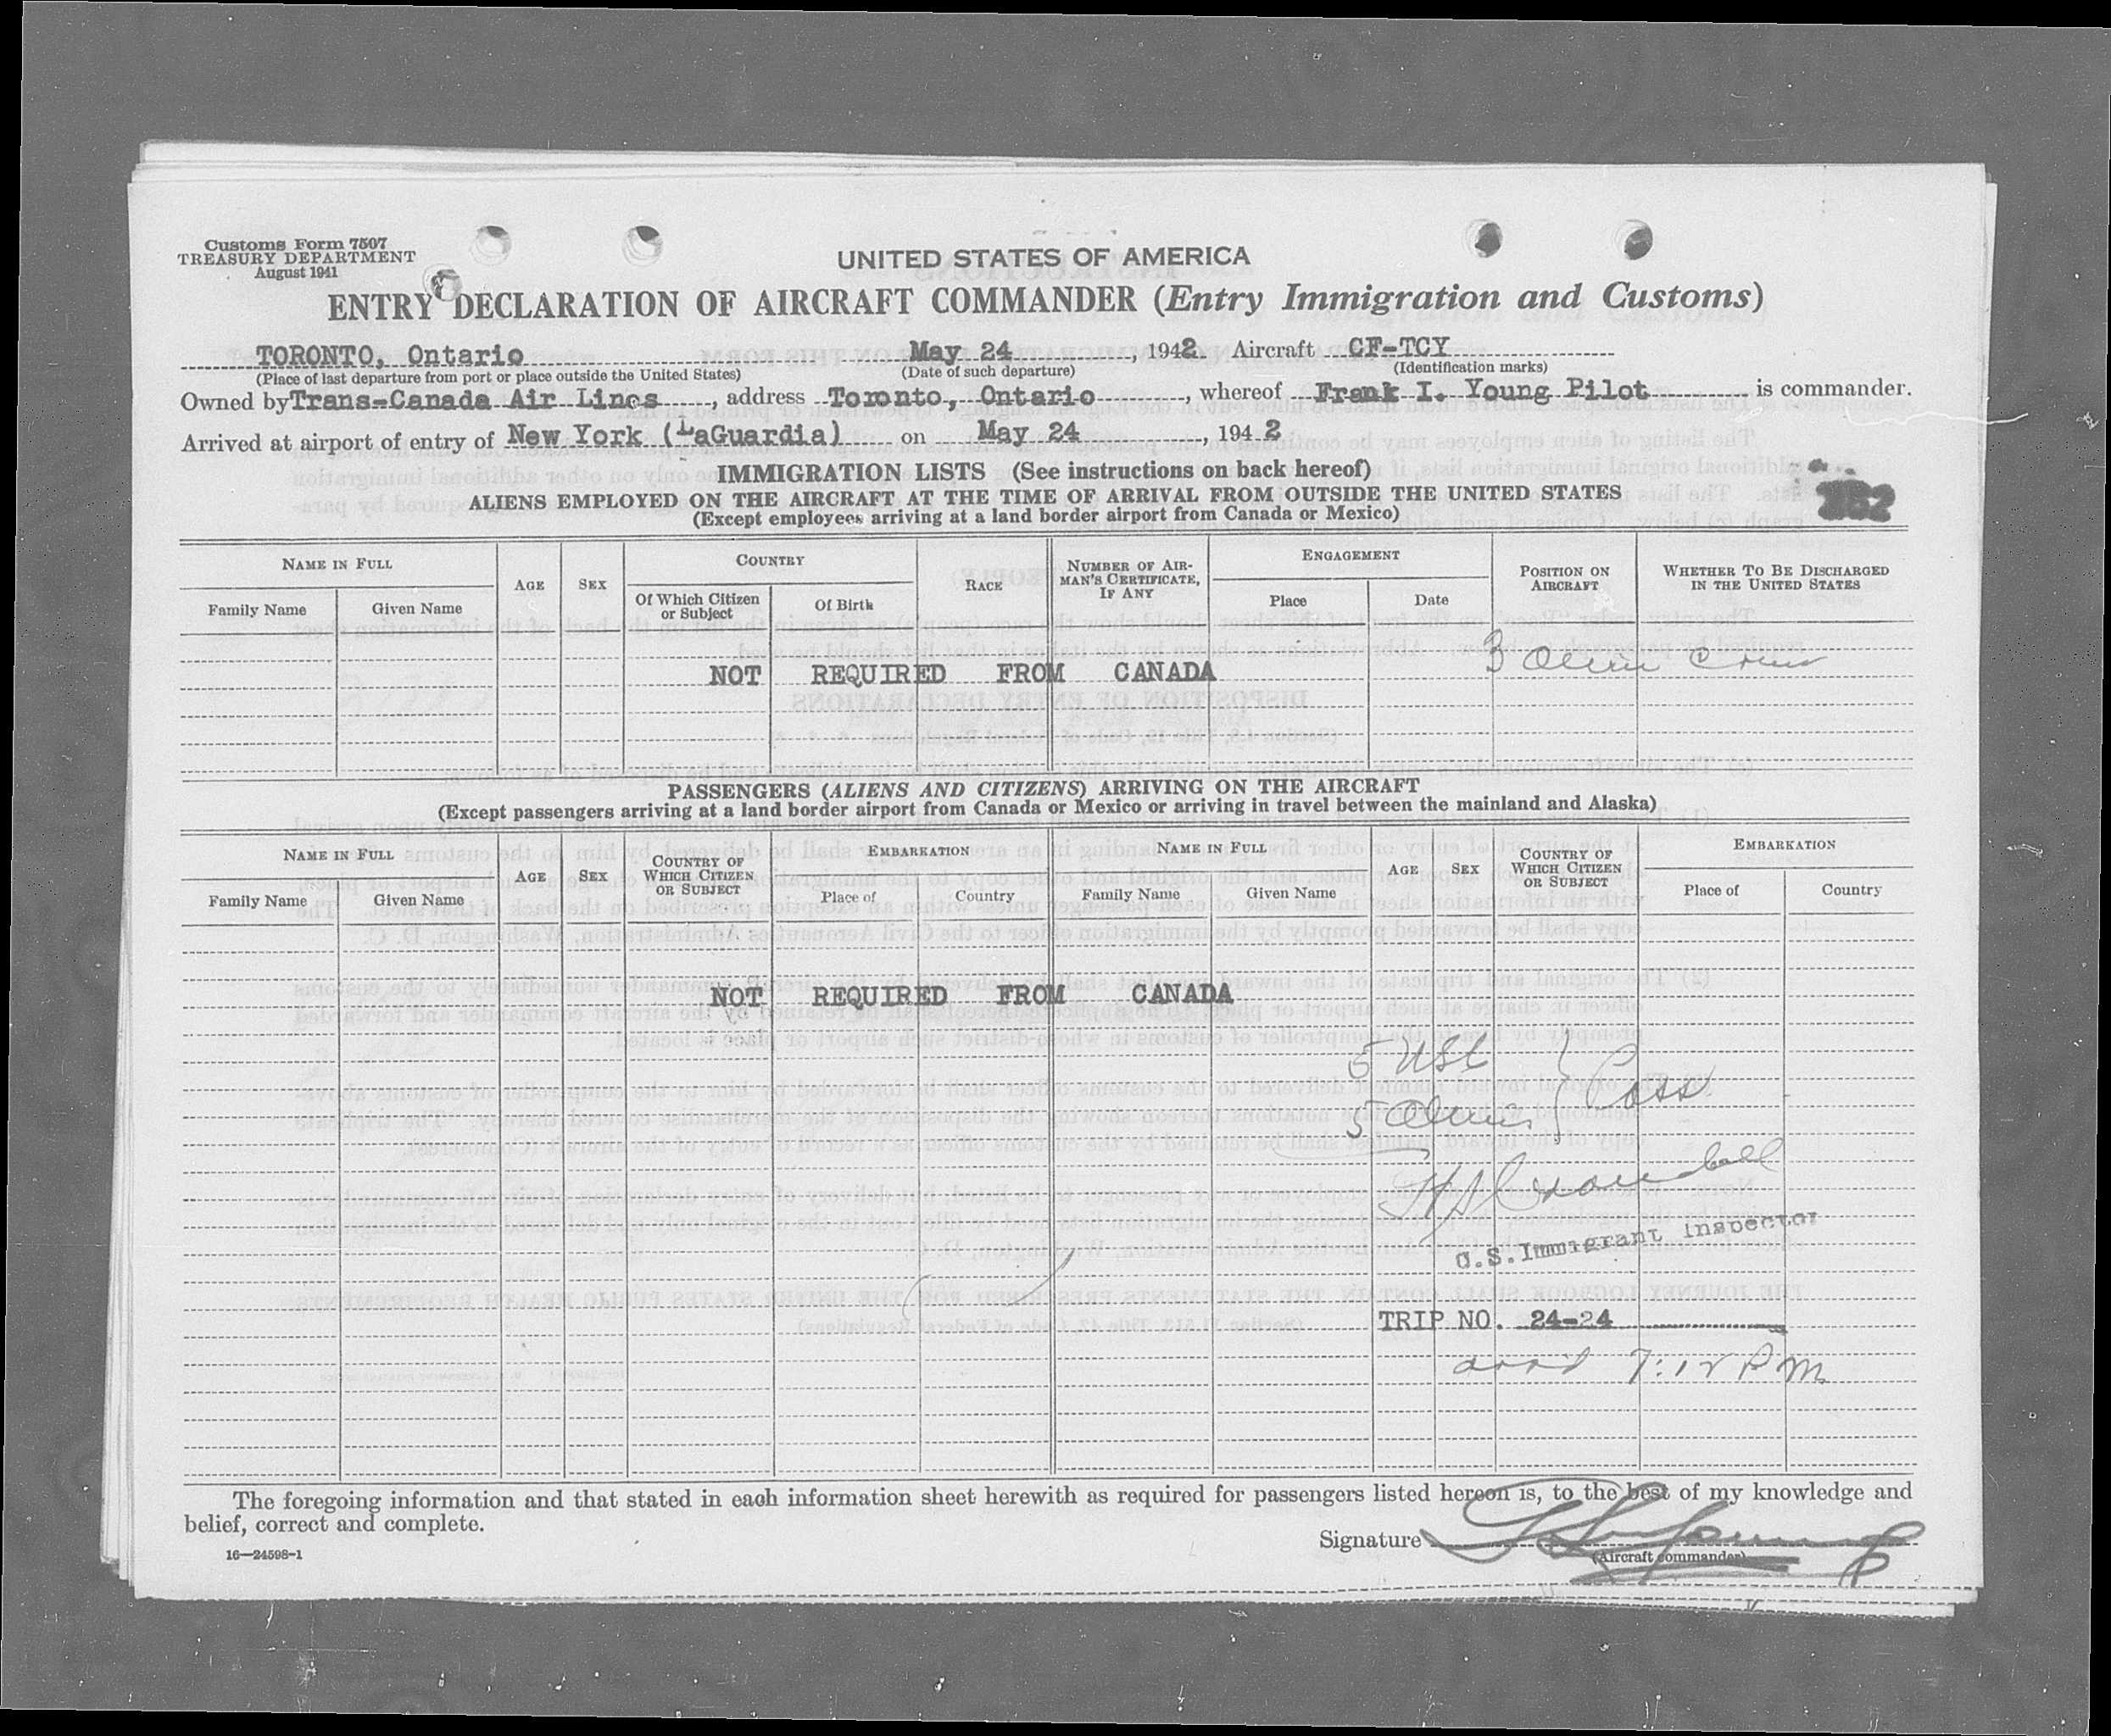 Customs Form 7507
TREASURY DEPARTMENT
August 1941
UNITED STATES OF AMERICA
ENTRY DECLARATION OF AIRCRAFT COMMANDER (Entry Immigration and Customs)
TORONTO, Ontario May 24, 1942. Aircraft CF-TCY
(Place of last departure from port or place outside the United States) (Date of such departure) (Identification marks)
Owned by Trans-Canada Air Lines, address Toronto, Ontario, whereof Frank I. Young Pilot is commander.
Arrived at airport of entry of New York (LaGuardia) on May 24, 1942
IMMIGRATION LISTS (See instructions on back hereof)
ALIENS EMPLOYED ON THE AIRCRAFT AT THE TIME OF ARRIVAL FROM OUTSIDE THE UNITED STATES
(Except employees arriving at a land border airport from Canada or Mexico)
152
NAME IN FULL AGE SEX COUNTRY RACE NUMBER OF AIRMAN'S CERTIFICATE, IF ANY ENGAGEMENT POSITION ON AIRCRAFT WHETHER TO BE DISCHARGED IN THE UNITED STATES
Family Name Given Name Of Which Citizen or Subject Of Birth Place Date
3 Alien Crew
NOT REQUIRED FROM CANADA
PASSENGERS (ALIENS AND CITIZENS) ARRIVING ON THE AIRCRAFT
(Except passengers arriving at a land border airport from Canada or Mexico or arriving in travel between the mainland and Alaska)
NAME IN FULL AGE SEX COUNTRY OF WHICH CITIZEN OR SUBJECT EMBARKATION NAME IN FULL AGE SEX COUNTRY OF WHICH CITIZEN OR SUBJECT EMBARKATION
Family Name Given Name Place of Country Family Name Given Name Place of Country
NOT REQUIRED FROM CANADA
5 USC
5 Aliens } Pass
U.S. Immigrant Inspector
TRIP NO. 24-24
arrd 7:12 PM
The foregoing information and that stated in each information sheet herewith as required for passengers listed hereon is, to the best of my knowledge and
belief, correct and complete.
Signature
(Aircraft commander)
16—24598-1